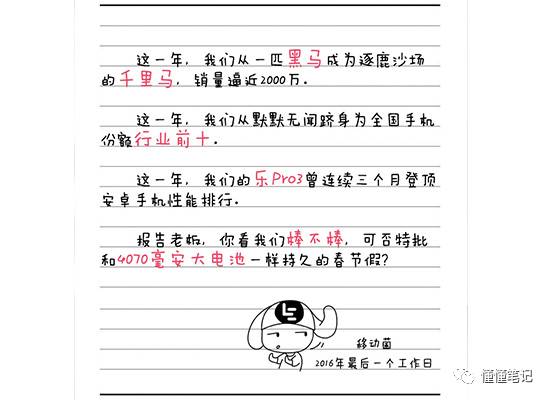 这一年，我们从一匹黑马成为逐鹿沙场
的千里马，销量逼近2000万．
这一年，我们从默默无闻跻身为全国手机
份额行业前十．
这一年，我们的乐Pro3曾连续三个月登顶
安卓手机性能排行．
报告老板，你看我们棒不棒，可否特批
和4070毫安大电池一样持久的春节假？
移动菌
2016年最后一个工作日
懂懂笔记